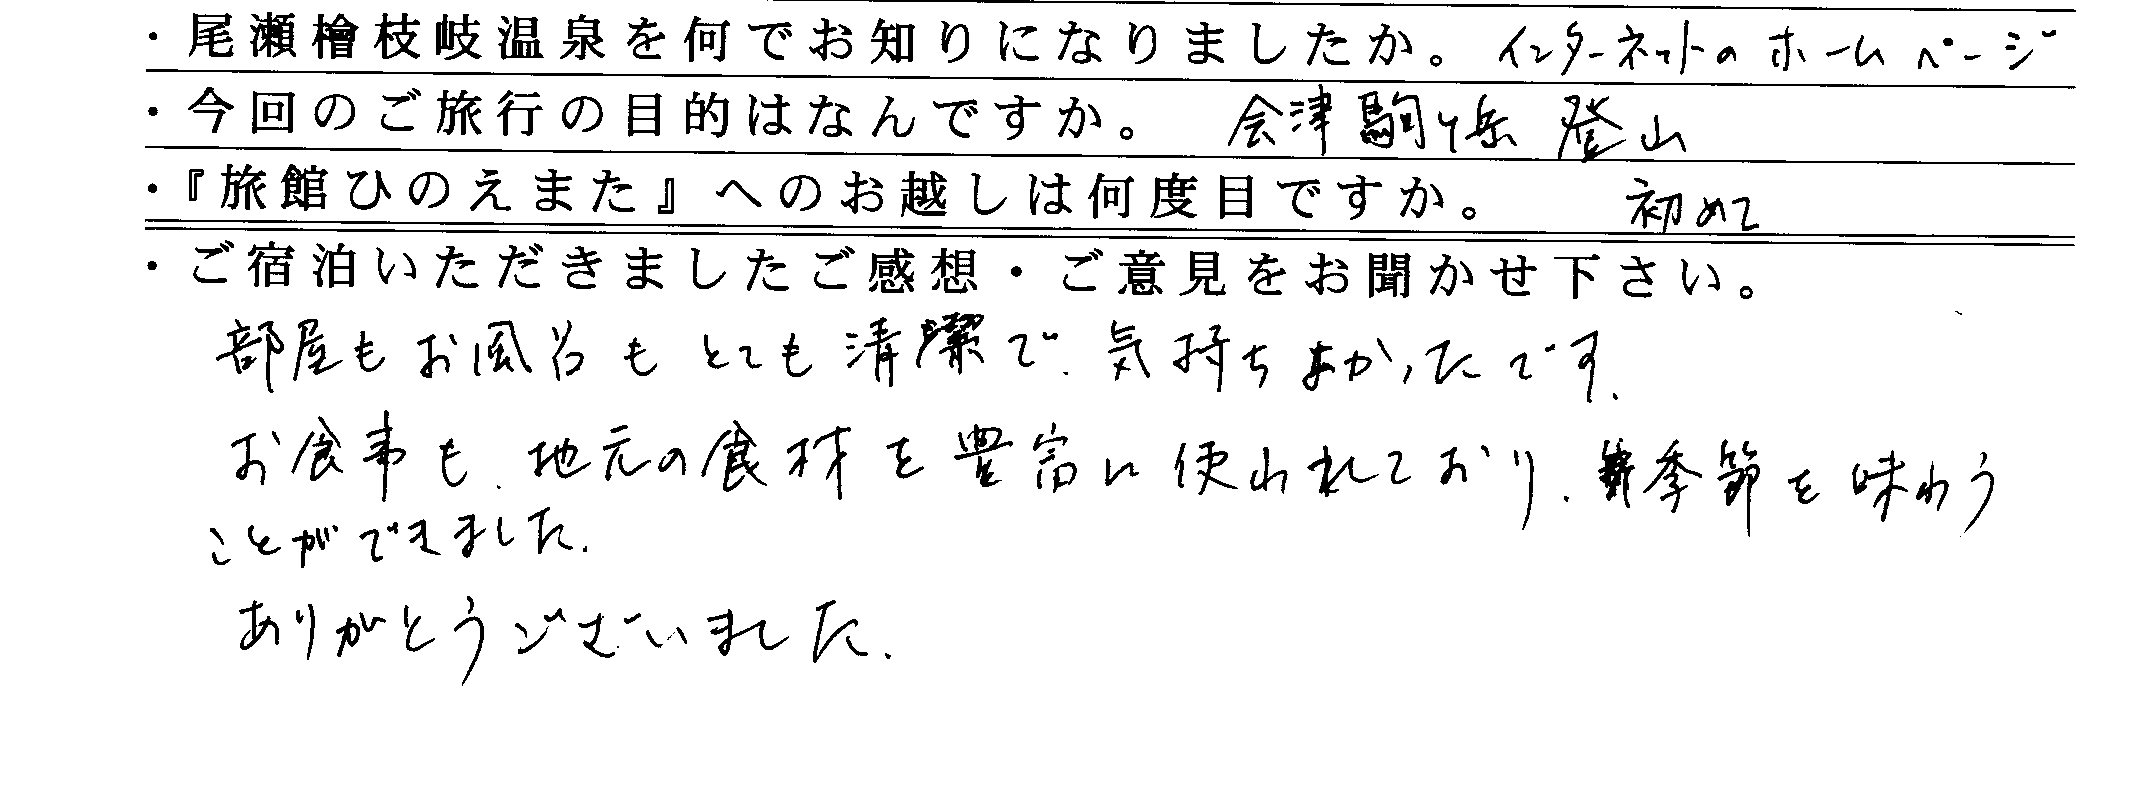 ・尾瀬檜枝岐温泉を何でお知りになりましたか。 インターネットのホームページ
・今回のご旅行の目的はなんですか。 会津駒ヶ岳 登山
・『旅館ひのえまた』へのお越しは何度目ですか。 初めて
・ご宿泊いただきましたご感想・ご意見をお聞かせ下さい。
部屋もお風呂もとても清潔で、気持ちよかったです。
お食事も、地元の食材を豊富に使われており、季節を味わう
ことができました。
ありがとうございました。